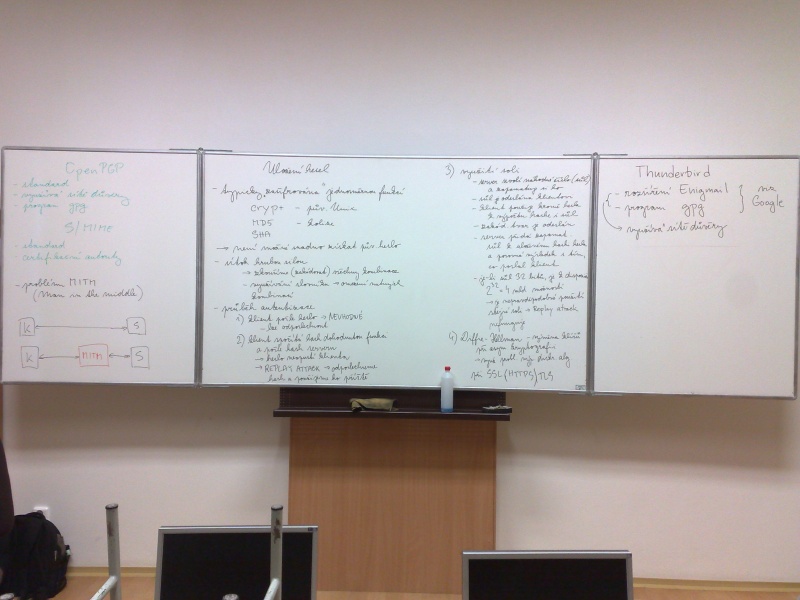 OpenPGP
- standard
- využívá sítě důvěry
- program gpg
S/MIME
- standard
- certifikační autority
- problém MITM
(Man in the middle)
K S
K MITM S
Uložení hesel
- typicky "zašifrována" jednosměrnou funkcí
crypt - pův. Unix
MD5 - kolize
SHA
→ není možné snadno získat pův. heslo
- útok hrubou silou
→ zkoušíme všechny kombinace
- využívání slovníku → omezení možných
kombinací
- průběh autentizace
1) klient pošle heslo → NEVHODNÉ
- lze odposlechnout
2) klient spočítá hash dohodnutou funkcí
a pošle hash serveru
→ heslo neopustí klienta
→ REPLAY ATTACK → odposlechneme
hash a použijeme ho příště
3) využití soli
- server zvolí náhodné číslo (sůl)
a zapamatuje si ho
- sůl je odeslána klientovi
- klient použije kromě hesla
k výpočtu hashe i sůl
- získaný hash je odeslán
- server přidá zapamat.
sůl k uloženému hashi hesla
a porovná výsledek s tím,
co poslal klient
- je-li sůl 32 bitů, je k dispozici
2^32 ~ 4 mld možností
→ je nepravděpodobné použití
stejné soli → Replay attack
nefunguje
4) Diffie-Hellman - výměna klíčů
při asym. kryptografii
při SSL (HTTPS) TLS
Thunderbird
- rozšíření Enigmail
- program gpg
viz Google
→ využívá sítě důvěry